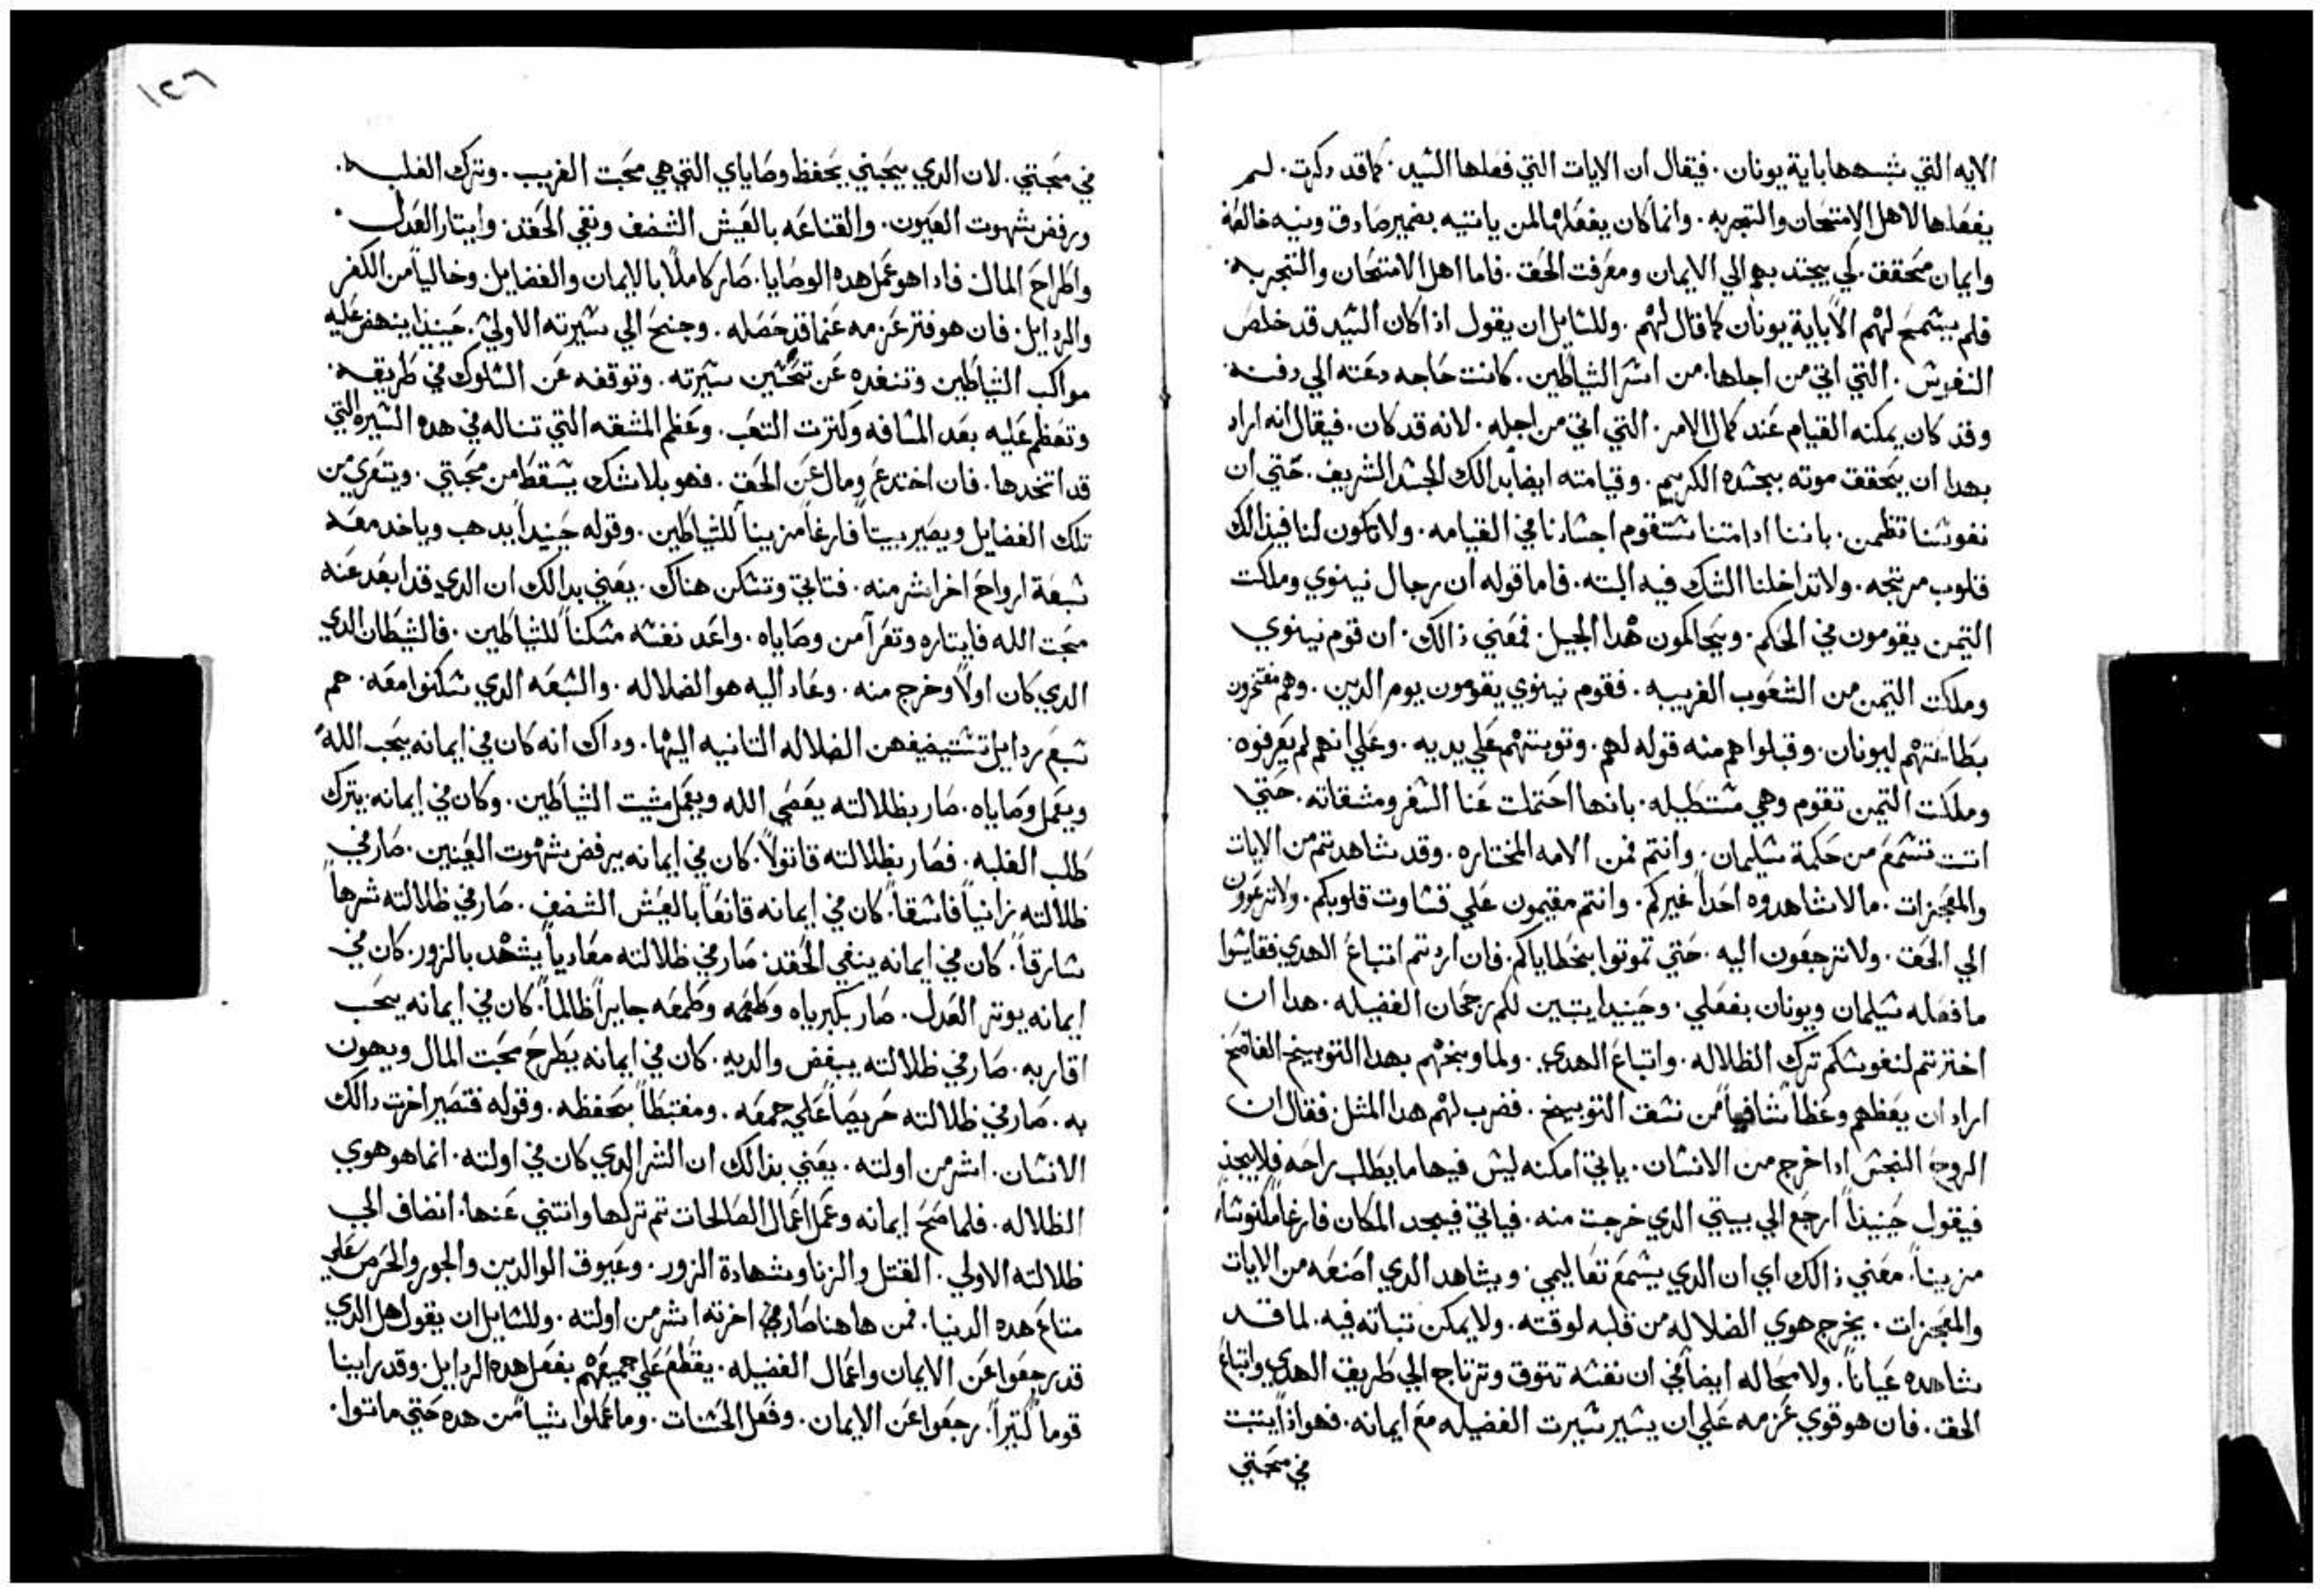 الايه التي شبهها باية يونان. فيقال ان الايات التي فعلها السيد. كما قد دكرت. لم
يفعلها لاهل الامتحان والتجربه. وانما كان يفعلها لمن ياتيه بضمير صادق ونيه خالصه
وايمان محقق. كي يجتدبهم الي الايمان ومعرفت الحق. فاما اهل الامتحان والتجربه.
فلم يسمح لهم الا باية يونان كما قال لهم. وللسايل ان يقول اذا كان السيد قد خلص
النفوس. التي اتي من اجلها. من اسر الشياطين. كانت حاجه دعته الي دفنه.
وقد كان يمكنه القيام عند كمال الامر. التي اتي من اجله. لانه قد كان. فيقال انه اراد
بهدا ان يتحقق موته بجسده الكريم. وقيامته ايضاً بدالك الجسد الشريف. حتي ان
نفوسنا تطمن. باننا ادا متنا ستقوم اجسادنا في القيامه. ولا تكون لنا في ذالك
قلوب مرتجه. ولا تداخلنا الشك فيه البته. فاما قوله ان رجال نينوي وملكت
التيمن يقومون في الحكم. ويحاكمون هدا الجيل. فمعني ذالك. ان قوم نينوي
وملكت التيمن من الشعوب الغريبه. فقوم نينوي يقومون يوم الدين. وهم مفتخرون
بطاعتهم ليونان. وقبلواهم منه قوله لهم. وتوبتهم علي يديه. وعلي انهم لم يعرفوه.
وملكت التيمن تقوم وهي مستطيله. بانها احتملت عنا السفر ومشقاته. حتي
اتت تسمع من حكمة سليمان. وانتم فمن الامه المختاره. وقد شاهدتم من الايات
والمعجزات. ما لا شاهدوه احداً غيركم. وانتم مقيمون علي قساوت قلوبكم. ولا ترعوون
الي الحق. ولا ترجعون اليه. حتي تموتوا بخطاياكم. فان اردتم اتباع الهدي فقايسوا
ما فعله سليمان ويونان بفعلي. وحينيدا يتبين لكم رجحان الفضيله. هدا ان
اخترتم لنفوسكم ترك الظلاله. واتباع الهدي. ولما وبخهم بهدا التوبيخ الفاضح
اراد ان يعظهم وعظاً شافياً من نسق التوبيخ. فضرب لهم هدا المثل. فقال ان
الروح النجس ادا خرج من الانسان. ياتي امكنه ليس فيها ما يطلب راحه فلا يجد
فيقول حينيذاً ارجع الي بيتي الدي خرجت منه. فياتي فيجد المكان فارغاً مكنوساً
مزيناً. معني ذالك اي ان الدي يسمع تعاليمي. ويشاهد الدي اصنعه من الايات
والمعجزات. يخرج هوي الضلاله من قلبه لوقته. ولا يمكن تباته فيه. لما قد
شاهده عياناً. ولا محاله ايضاً في ان نفسه تتوق وترتاح الي طريق الهدي واتباع
الحق. فان هو قوي عزمه علي ان يسير سيرت الفضيله مع ايمانه. فهو اذاً يتبت
في محبتي
١٢٦
في محبتي. لان الدي يحبني يحفظ وصاياي التي هي محبت الغريب. وترك الغلبه.
ورفض شهوت العيون. والقناعه بالعيش الشضف ونفي الحقد. وايتار العدل.
واطراح المال. فادا هو عمل هده الوصايا. صار كاملاً بالايمان والفضايل وخالياً من الكفر
والردايل. فان هو فتر عزمه عما قد حصله. وجنح الي سيرته الاولي. حينيذا ينهض عليه
مواكب الشياطين وتنفده عن تحسين سيرته. وتوقفه عن السلوك في طريقه.
وتعظم عليه بعد المسافه وكترت التعب. وعظم المشقه التي تناله في هده السيره التي
قد اتخدها. فان اختدع ومال عن الحق. فهو بلا شك يسقط من محبتي. ويتعري من
تلك الفضايل ويصير بيتاً فارغاً مزيناً للشياطين. وقوله حينيداً يدهب وياخد معه
سبعة ارواح اخر اشر منه. فتاتي وتسكن هناك. يعني بدالك ان الدي قد ابعد عنه
محبت الله فايتاره وتعرا من وصاياه. واعد نفسه مسكناً للشياطين. فالشيطان الدي
الدي كان اولاً وخرج منه. وعاد اليه هو الضلاله. والسبعه الدي سكنوا معه. هم
سبع ردايل تستضيفهن الضلاله التانيه اليها. وداك انه كان في ايمانه يحب الله
ويعمل وصاياه. صار بظلالته يعصي الله ويعمل مشيت الشياطين. وكان في ايمانه يترك
طلب الغلبه. فصار بظلالته قاتولاً. كان في ايمانه يرفض شهوت العينين. صار في
ظلالته زانياً فاسقاً. كان في ايمانه قانعاً بالعيش الشضف. صار في ظلالته شرهاً
سارقاً. كان في ايمانه ينفي الحقد. صار في ظلالته معادياً يشهد بالزور. كان في
ايمانه يوتر العدل. صار بكبرياه وطعمه وطمعه جايراً ظالماً. كان في ايمانه يحب
اقاربه. صار في ظلالته يبغض والديه. كان في ايمانه يطرح محبت المال ويهون
به. صار في ظلالته حريصاً علي جمعه. ومغتبطاً بحفظه. وقوله فتصير اخرت دالك
الانسان. اشر من اولته. يعني بذالك ان الشر الدي كان في اولته. انما هو هوي
الظلاله. فلما صح ايمانه وعمل اعمال الصالحات تم تركها وانتني عنها. انضاف الي
ظلالته الاولي. القتل والزنا وشهادة الزور. وعيوق الوالدين والجور والحرص علي
متاع هده الدنيا. فمن هاهنا صار في اخرته اشر من اولته. وللسايل ان يقول هل الدي
قد رجعوا عن الايمان واعمال الفضيله. يقطع علي جميعهم بفعل هده الردايل. وقد راينا
قوماً كتيراً. رجعوا عن الايمان. وفعل الحسنات. وما عملوا شياً من هده حتي ماتوا.